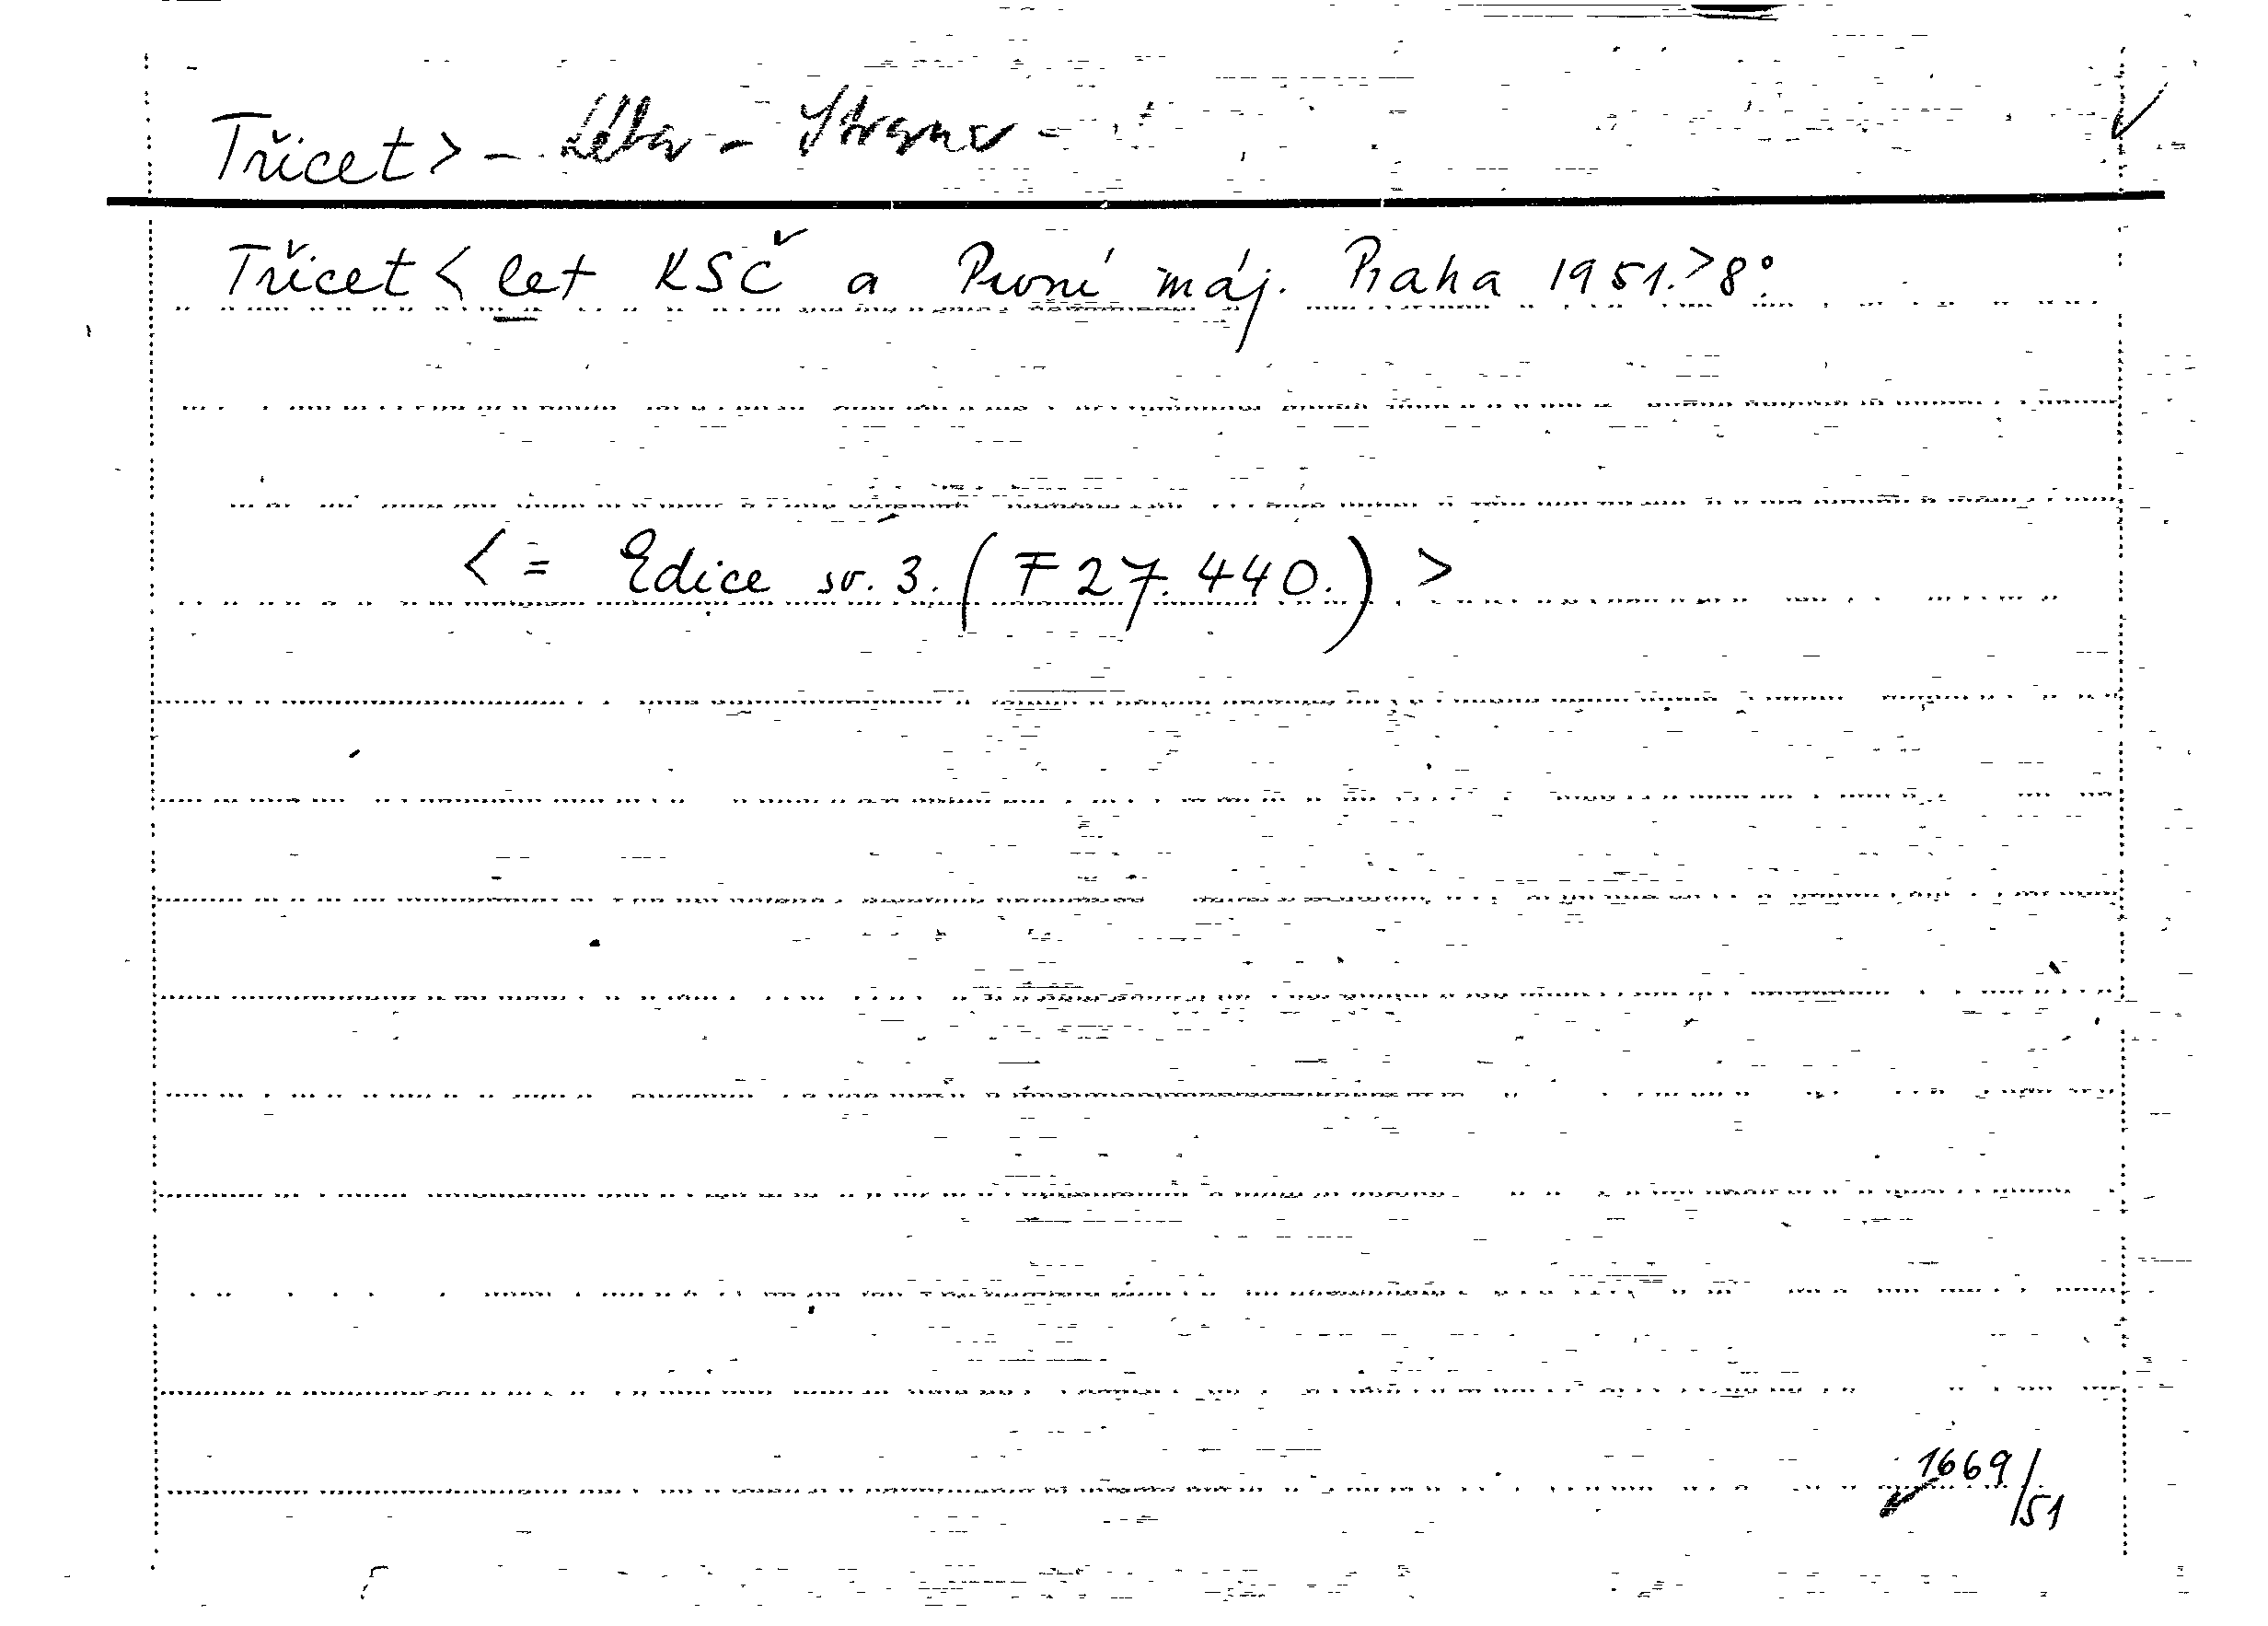 Třicet > -
Třicet < let KSČ a První máj. Praha 1951. > 8°.
< = Edice sv. 3. ( F 27.440. ) >
1669/51